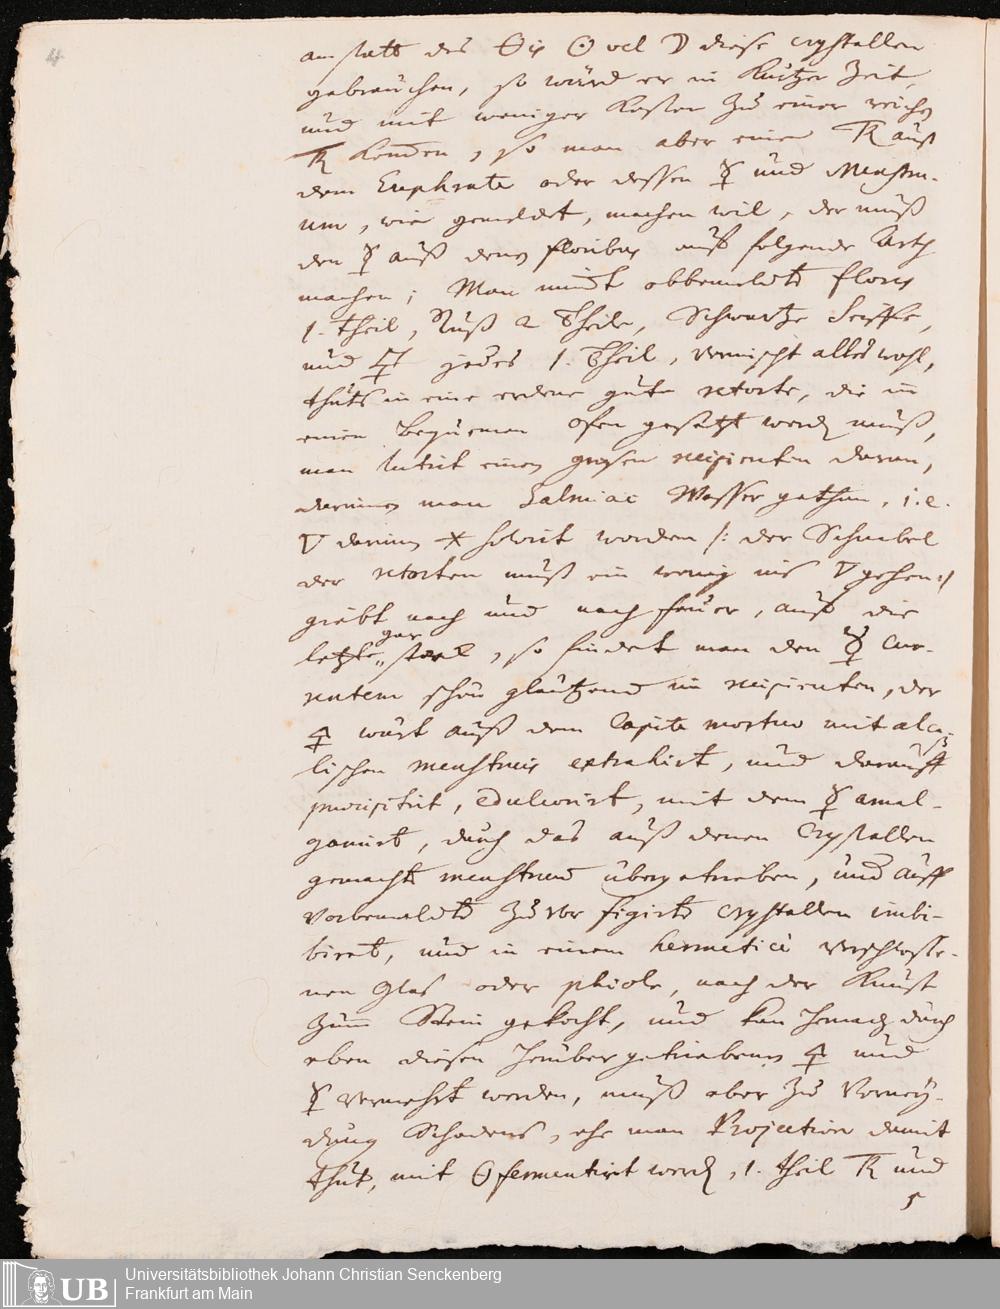 4
anstatt des 🜔is ☉ vel ☽ diese crystallen
gebrauchen, so würd er in kurtzer Zeit,
und mit weniger Kosten zu einer reichen
kommen, so man aber eine auß
dem Euphrate oder dessen ☿ und Menstru-
um, wie gemeldet, machen wil, der muß
den ☿ auß denen floribus auf folgende Arth
machen; Man nimbt obbemeldte flores
1. theil, Ruß 2 Theile, Schwartze Seiffe,
und jedes 1. Theil, vermischt alles wohl,
thuts in eine erdene gute retorte, die in
einen bequemen Ofen gesetzt werden muß,
man lutirt einen grosen recipienten daran,
darinnen man Salmiac Wasser gethan, i.e.
▽ darinn ✶ solvirt worden /: der Schnabel
der retorten muß ein wenig ins ▽ gehen :/
giebt nach und nach feuer, auf die
letzte gar starck, so findet man den ☿ cur-
rentem schön gläntzend im recipienten, der
🜍 wird auß dem Capite mortuo mit alca-
lischen menstruis extrahirt, und darauff
praecipitirt, edulcorirt, mit dem ☿ amal-
gamirt, durch das auß denen Crystallen
gemachte menstruum übergetrieben, und auff
vorbemeldte zuvor figirte crystallen imbi-
biret, und in einem hermeticè verschlosse-
nen Glas oder phiole, nach der Kunst
zum Stein gekocht, und kan hernach durch
eben diesen herübergetriebenen 🜍 und
☿ vermehrt werden, muß aber zu Vermey-
dung Schadens, ehe man Projection damit
thut, mit ☉ fermentirt werden, 1. theil und
5
Universitätsbibliothek Johann Christian Senckenberg
Frankfurt am Main
UB